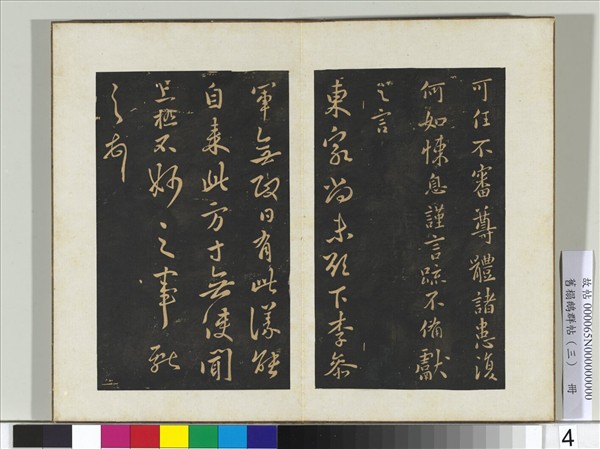 可任不審尊體諸患復
何如悚息謹言疏不備獻
之言
東家尚未段下李參
軍無政日有此深能
自來此方寸無使聞
此極不好之事耿
之有
故帖 000065N000000000
舊搨鵝群帖（三） 冊
4